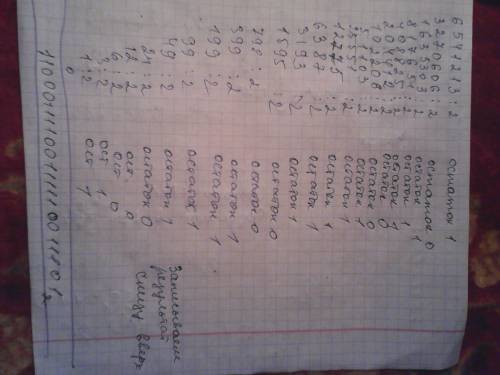 6541213 : 2 остаток 1
3270606 : 2 остаток 0
1635303 : 2 остаток 1
817651 : 2 остаток 1
408825 : 2 остаток 1
204412 : 2 остаток 0
102206 : 2 остаток 0
51103 : 2 остаток 1
25551 : 2 остаток 1
12775 : 2 остаток 1
6387 : 2 остаток 1
3193 : 2 остаток 1
1595 : 2 остаток 0
798 : 2 остаток 0
399 : 2 остаток 1
199 : 2 остаток 1
99 : 2 остаток 1
49 : 2 остаток 1
24 : 2 остаток 0
12 : 2 ост 0
6 : 2 ост 0
3 : 2 ост 1
1 : 2 ост 1
0
Записываем
результат
снизу вверх